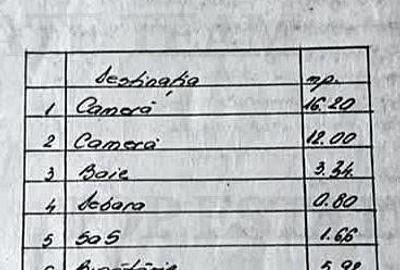 Destinația mp.
1 Cameră 16.20
2 Cameră 12.00
3 Baie 3.34
4 Debara 0.80
5 SaS 1.66